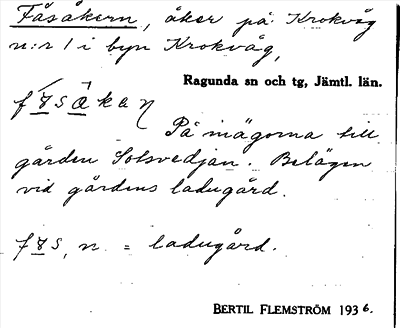 Fåsåkern, åker på Krokvåg
n:r 1 i byn Krokvåg,
Ragunda sn och tg, Jämtl. län.
På inägorna till
gården Solsvedjan. Belägen
vid gårdens ladugård.
n = ladugård.
BERTIL FLEMSTRÖM 1936.